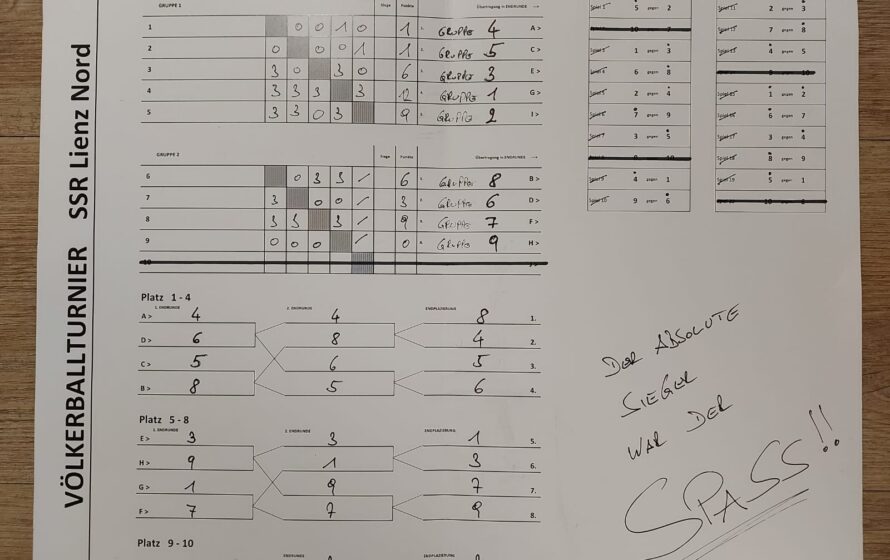 VÖLKERBALLTURNIER SSR Lienz Nord
GRUPPE 1 Siege Punkte Übertragung in ENDRUNDE
1 0 0 1 0 1 1. GRUPPE 4 A >
2 0 0 0 1 1 2. GRUPPE 5 C >
3 3 0 3 0 6 3. GRUPPE 3 E >
4 3 3 3 3 12 4. GRUPPE 1 G >
5 3 3 0 3 9 5. GRUPPE 2 I >
GRUPPE 2 Siege Punkte Übertragung in ENDRUNDE
6 0 3 3 / 6 1. GRUPPE 8 B >
7 3 0 0 / 3 2. GRUPPE 6 D >
8 3 3 3 / 9 3. GRUPPE 7 F >
9 0 0 0 / 0 4. GRUPPE 9 H >
10
Platz 1 - 4
1. ENDRUNDE 2. ENDRUNDE ENDPLAZIERUNG
A > 4 4 8 1.
D > 6 8 4 2.
C > 5 6 5 3.
B > 8 5 6 4.
Platz 5 - 8
1. ENDRUNDE 2. ENDRUNDE ENDPLAZIERUNG
E > 3 3 1 5.
H > 9 1 3 6.
G > 1 9 7 7.
F > 7 7 9 8.
Platz 9 - 10
ENDRUNDE ENDPLAZIERUNG
5 gegen 2
10 7
1 gegen 3
6 gegen 8
Spiel 5 2 gegen 4
Spiel 6 7 gegen 9
Spiel 7 3 gegen 5
10
Spiel 9 4 gegen 1
Spiel 10 9 gegen 6
2 gegen 3
7 gegen 8
4 gegen 5
10
Spiel 15 1 gegen 2
Spiel 16 6 gegen 7
Spiel 17 3 gegen 4
Spiel 18 8 gegen 9
Spiel 19 5 gegen 1
DER ABSOLUTE
SIEGER
WAR DER
SPASS!!